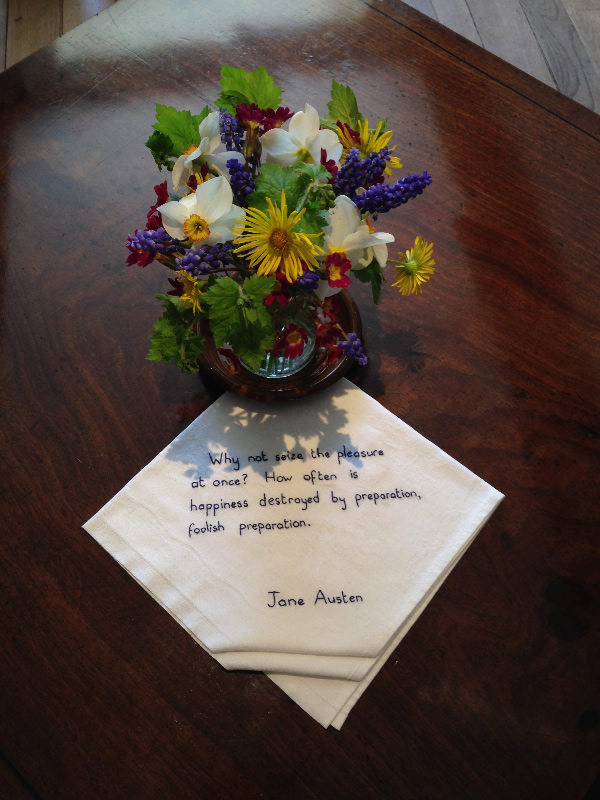 Why not seize the pleasure
at once? How often is
happiness destroyed by preparation,
foolish preparation.
Jane Austen